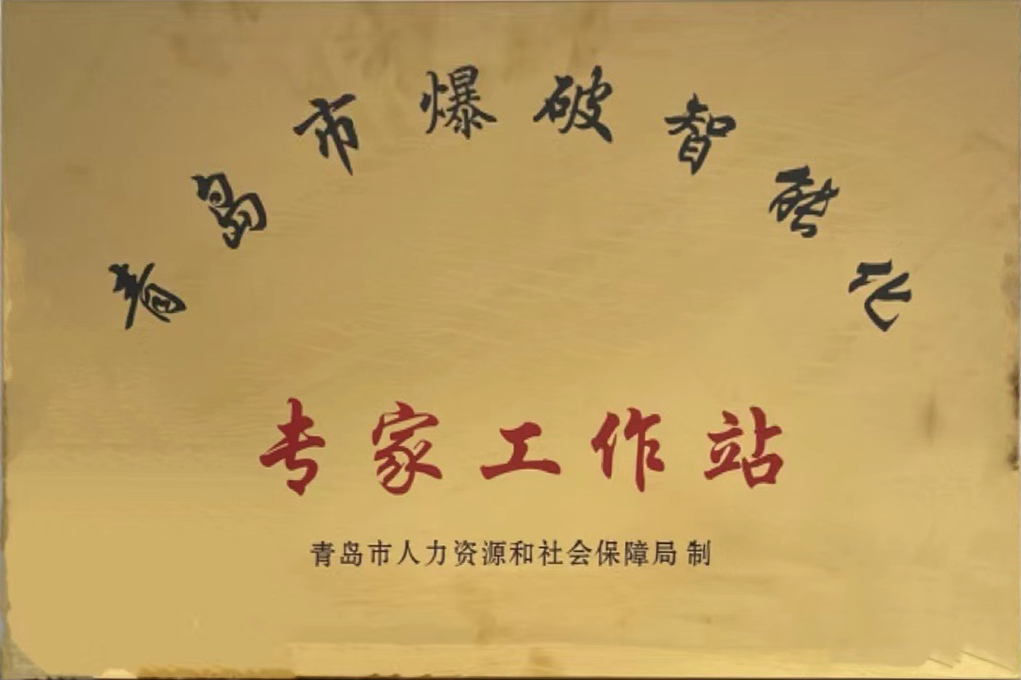 青岛市爆破智能化
专家工作站
青岛市人力资源和社会保障局 制